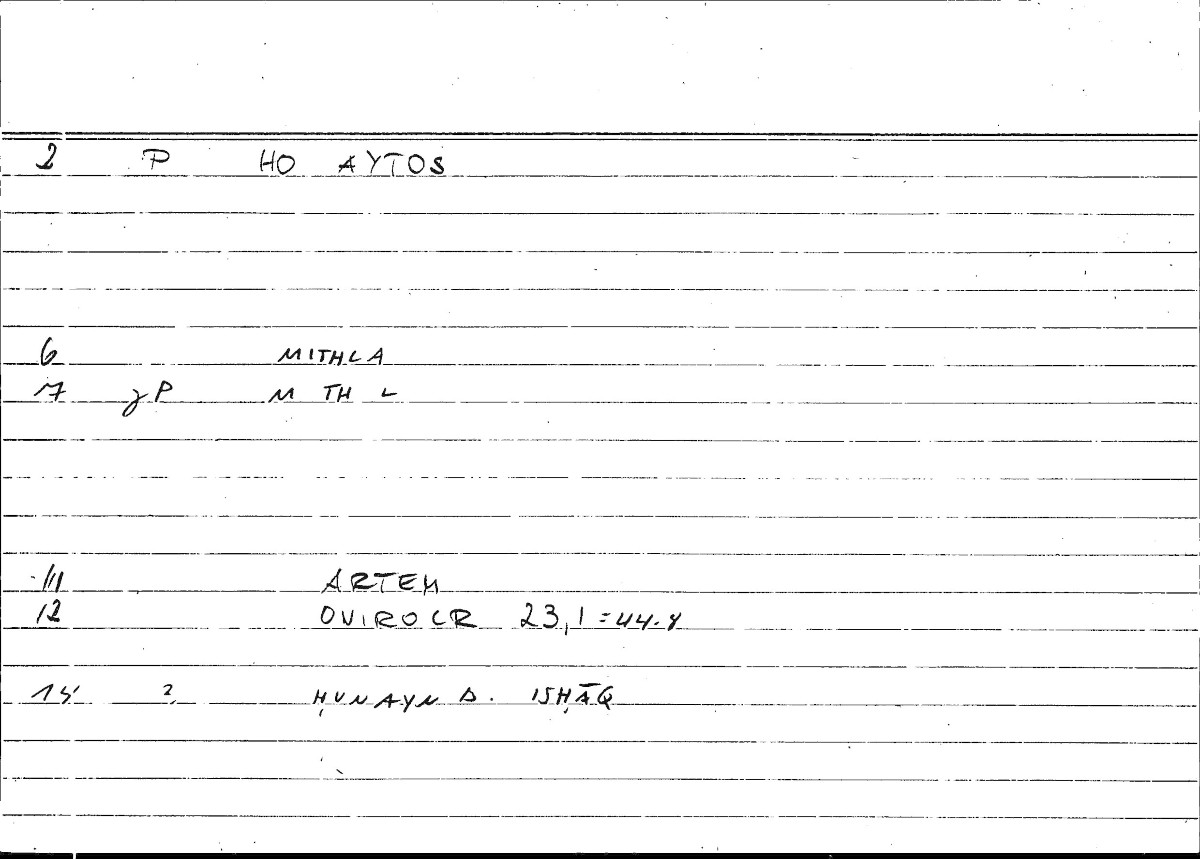 2 P HO AYTOS
6 MITHLA
7 gP M TH L
11 ARTEM
12 OVIROCR 23,1 = 44.8
15 ? ḤUNAYN B. ISḤĀQ